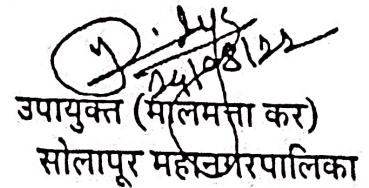 उपायुक्त (मालमत्ता कर)
सोलापूर महानगरपालिका